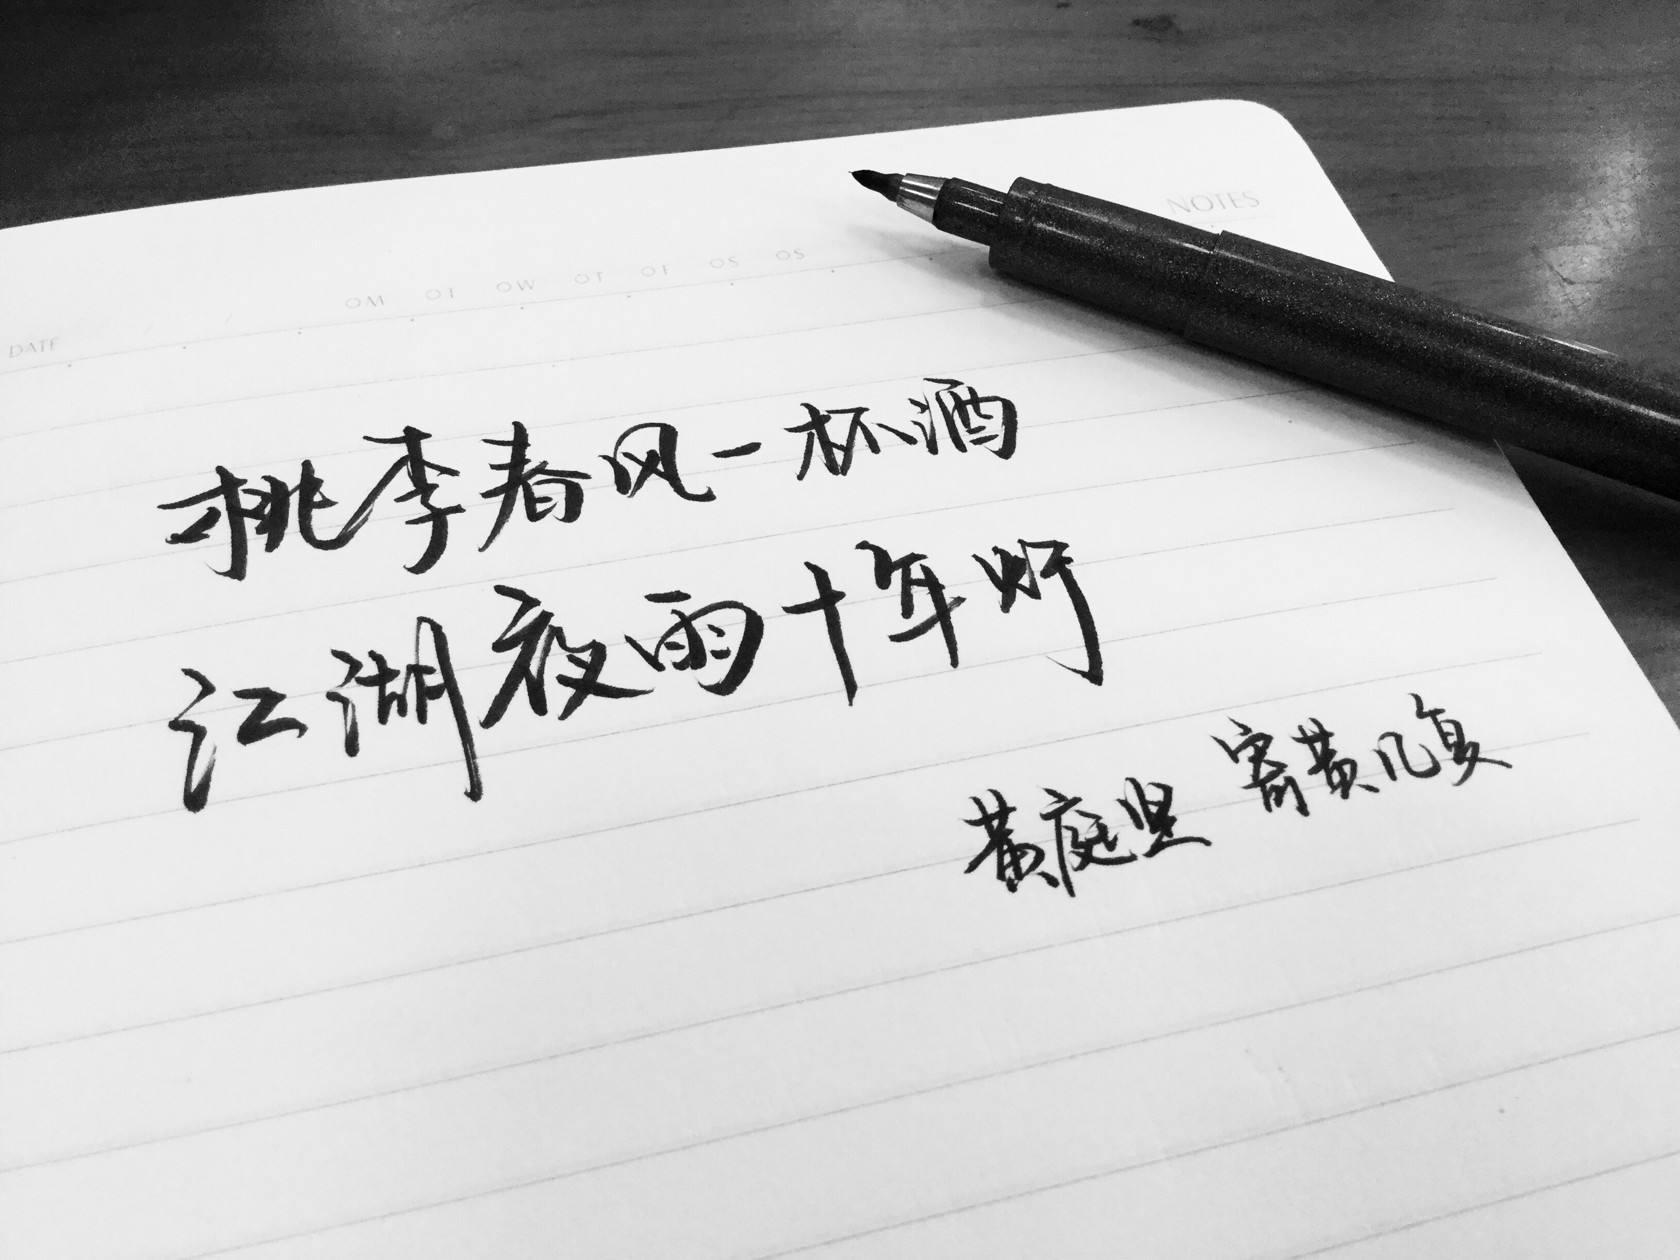 NOTES
OM OT OW OT OF OS OS
DATE
桃李春风一杯酒
江湖夜雨十年灯
黄庭坚 寄黄几复